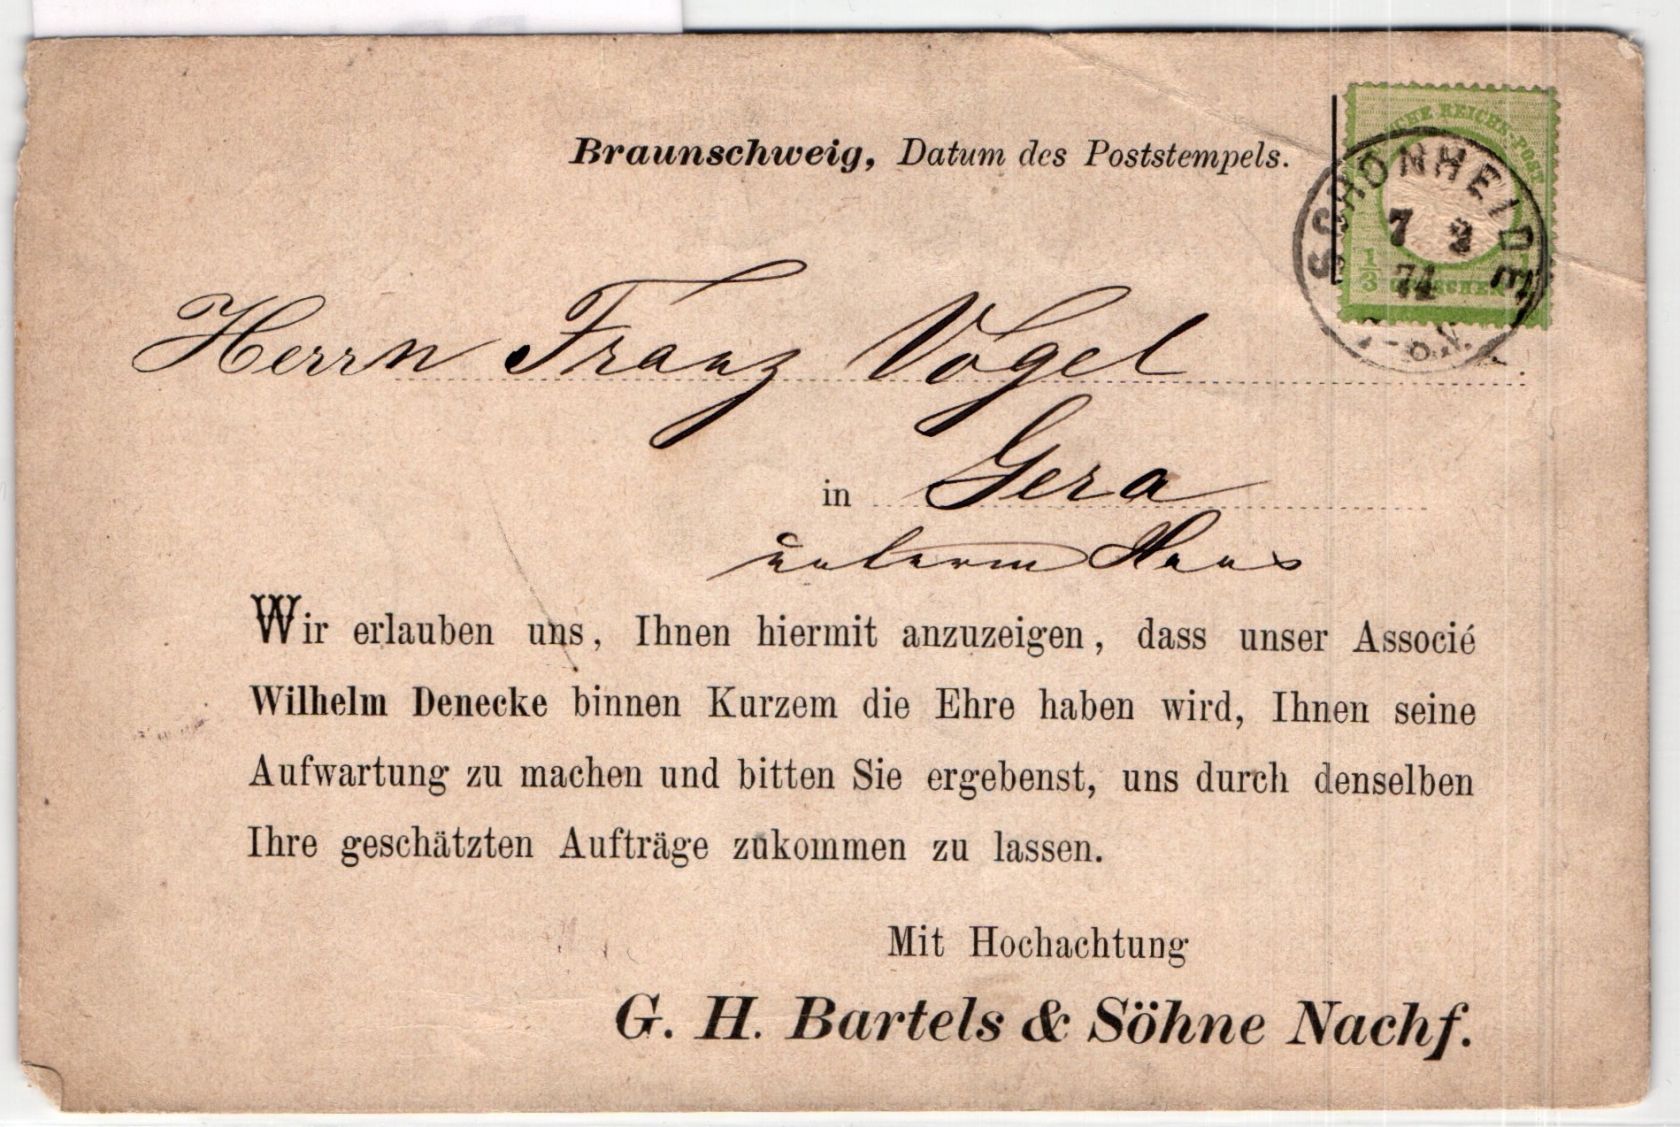 Braunschweig, Datum des Poststempels.
DEUTSCHE REICHS-POST
SCHÖNHEIDE
7 2
74
1/3 GROSCHEN
Herrn Franz Vogel
in Gera
unterm Haus
Wir erlauben uns, Ihnen hiermit anzuzeigen, dass unser Associé
Wilhelm Denecke binnen Kurzem die Ehre haben wird, Ihnen seine
Aufwartung zu machen und bitten Sie ergebenst, uns durch denselben
Ihre geschätzten Aufträge zukommen zu lassen.
Mit Hochachtung
G. H. Bartels & Söhne Nachf.